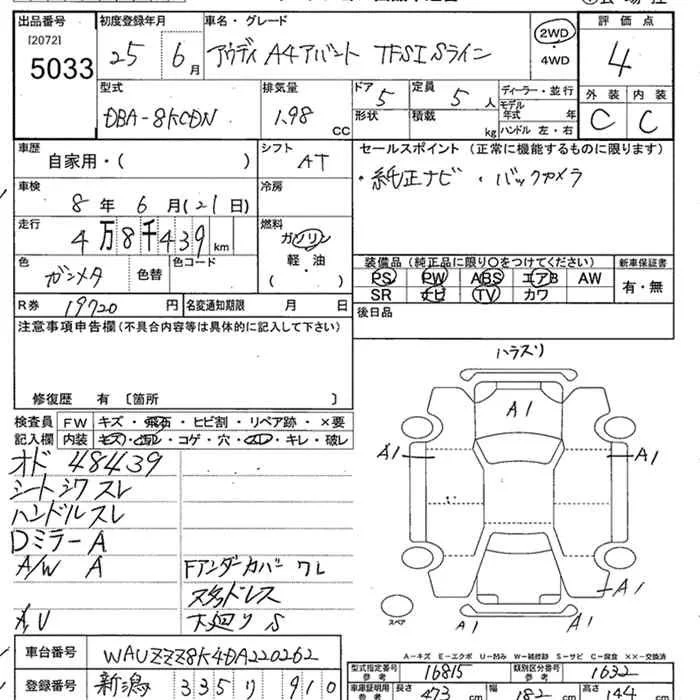 出品番号 初度登録年月 車名・グレード 2WD 評価点
[2072] 5033 25 6月 アウディ A4アバント TFSI Sライン ・4WD 4
型式 排気量 ドア 5 定員 5人 ディーラー・並行 外装 内装
DBA-8KCDN 1.98 CC 形状 積載 kg モデル年式 年 ハンドル 左・右 C C
車歴 自家用・( ) シフト AT セールスポイント (正常に機能するものに限ります)
車検 8年 6月 (21日) 冷房 ・純正ナビ ・バックカメラ
走行 4万8千439km 燃料 ガソリン
軽・油
( )
色 ガンメタ 色替 色コード 装備品 (純正品に限り○をつけてください) 新車保証書
PS PW ABS エアB AW 有・無
SR ナビ TV カワ
R券 19720円 名変通知期限 月 日 後日品
注意事項申告欄 (不具合内容等は具体的に記入して下さい)
修復歴 有 〔箇所 〕
検査員 FW キズ・飛石・ヒビ割・リペア跡・×要
記入欄 内装 キズ・ヨゴレ・コゲ・穴・スレ・キレ・破レ
オド 48439
シートシワ スレ
ハンドルスレ
Dミラー A
A/W A Fアンダーカバー ワレ
スタッドレス
下廻り S
ハラスリ
A1
A1 A1
A1
A1
スペア
A-キズ E-エクボ U-凹み W-補修跡 S-サビ C-腐食 ××-交換済
車台番号 WAUZZZ8K4DA220262 型式指定番号 参考 16815 類別区分番号 参考 1632
登録番号 新潟 335 り 910 車庫証明用 参考 長さ 473 cm 幅 182 cm 高さ 144 cm